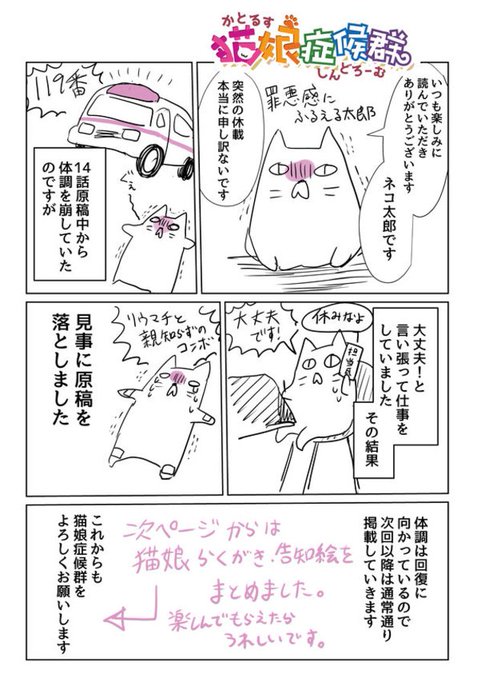 かとるす
猫娘症候群
しんどろーむ
いつも楽しみに
読んでいただき
ありがとうございます
ネコ太郎です
罪悪感に
ふるえる太郎
突然の休載
本当に申し訳ないです
119番
14話原稿中から
体調を崩していた
のですが
大丈夫！と
言い張って仕事を
していました
その結果
休みなよ
担当氏
大丈夫
です！
リウマチと
親知らずの
コンボ
見事に原稿を
落としました
体調は回復に
向かっているので
次回以降は通常通り
掲載していきます
次ページからは
猫娘らくがき・告知絵を
まとめました。
楽しんでもらえたら
うれしいです。
これからも
猫娘症候群を
よろしくお願いします